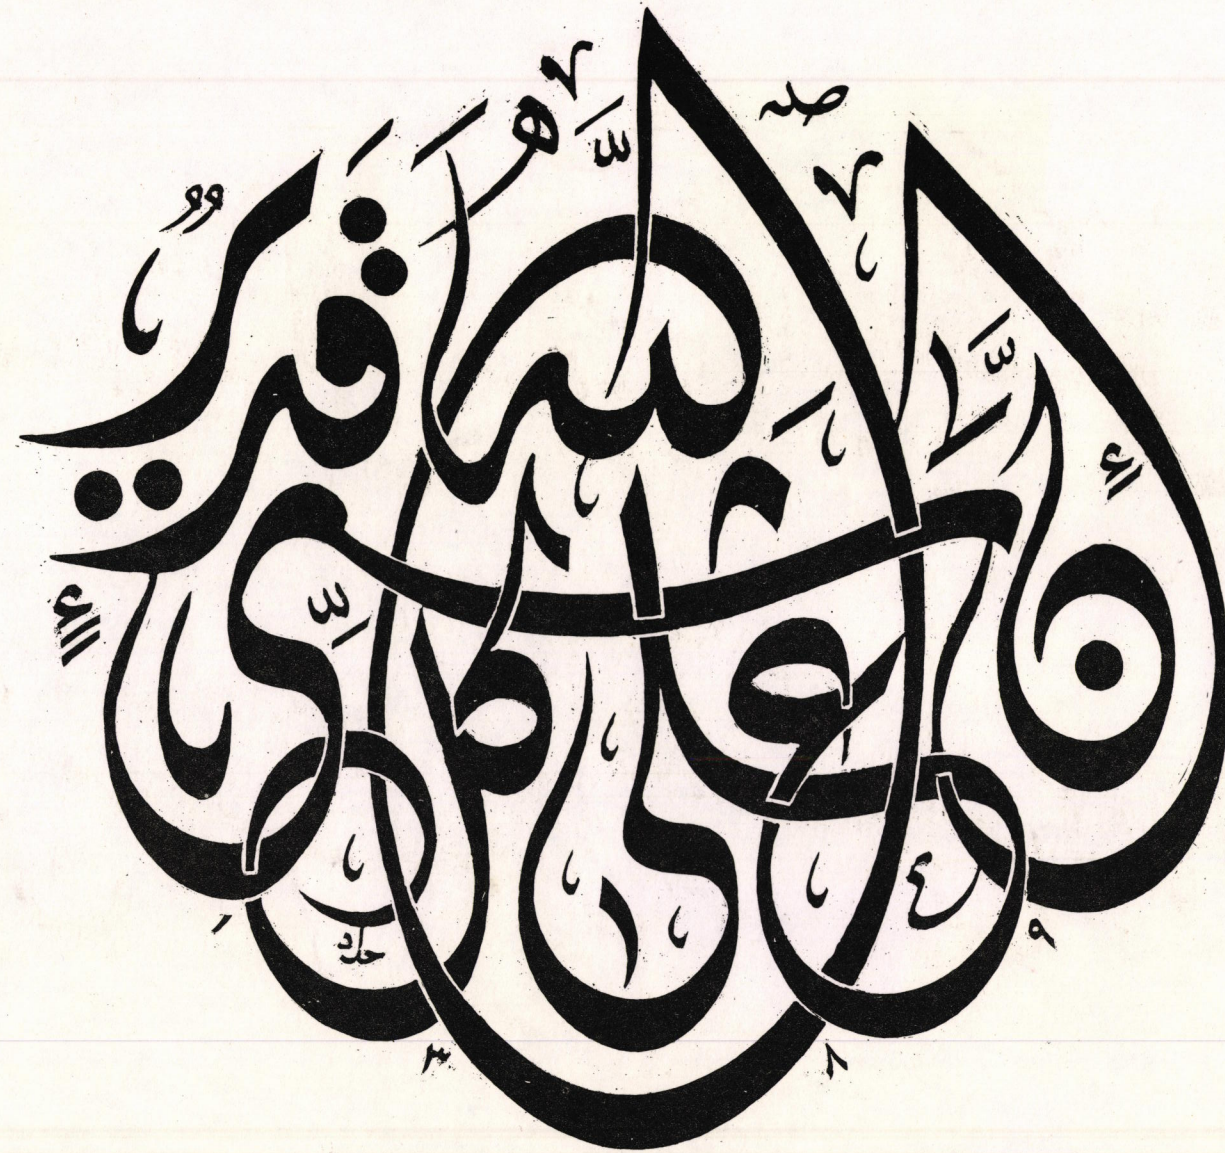 إِنَّ اللَّهَ عَلَى كُلِّ شَيْءٍ قَدِيرٌ
حامد
١٣٨٩